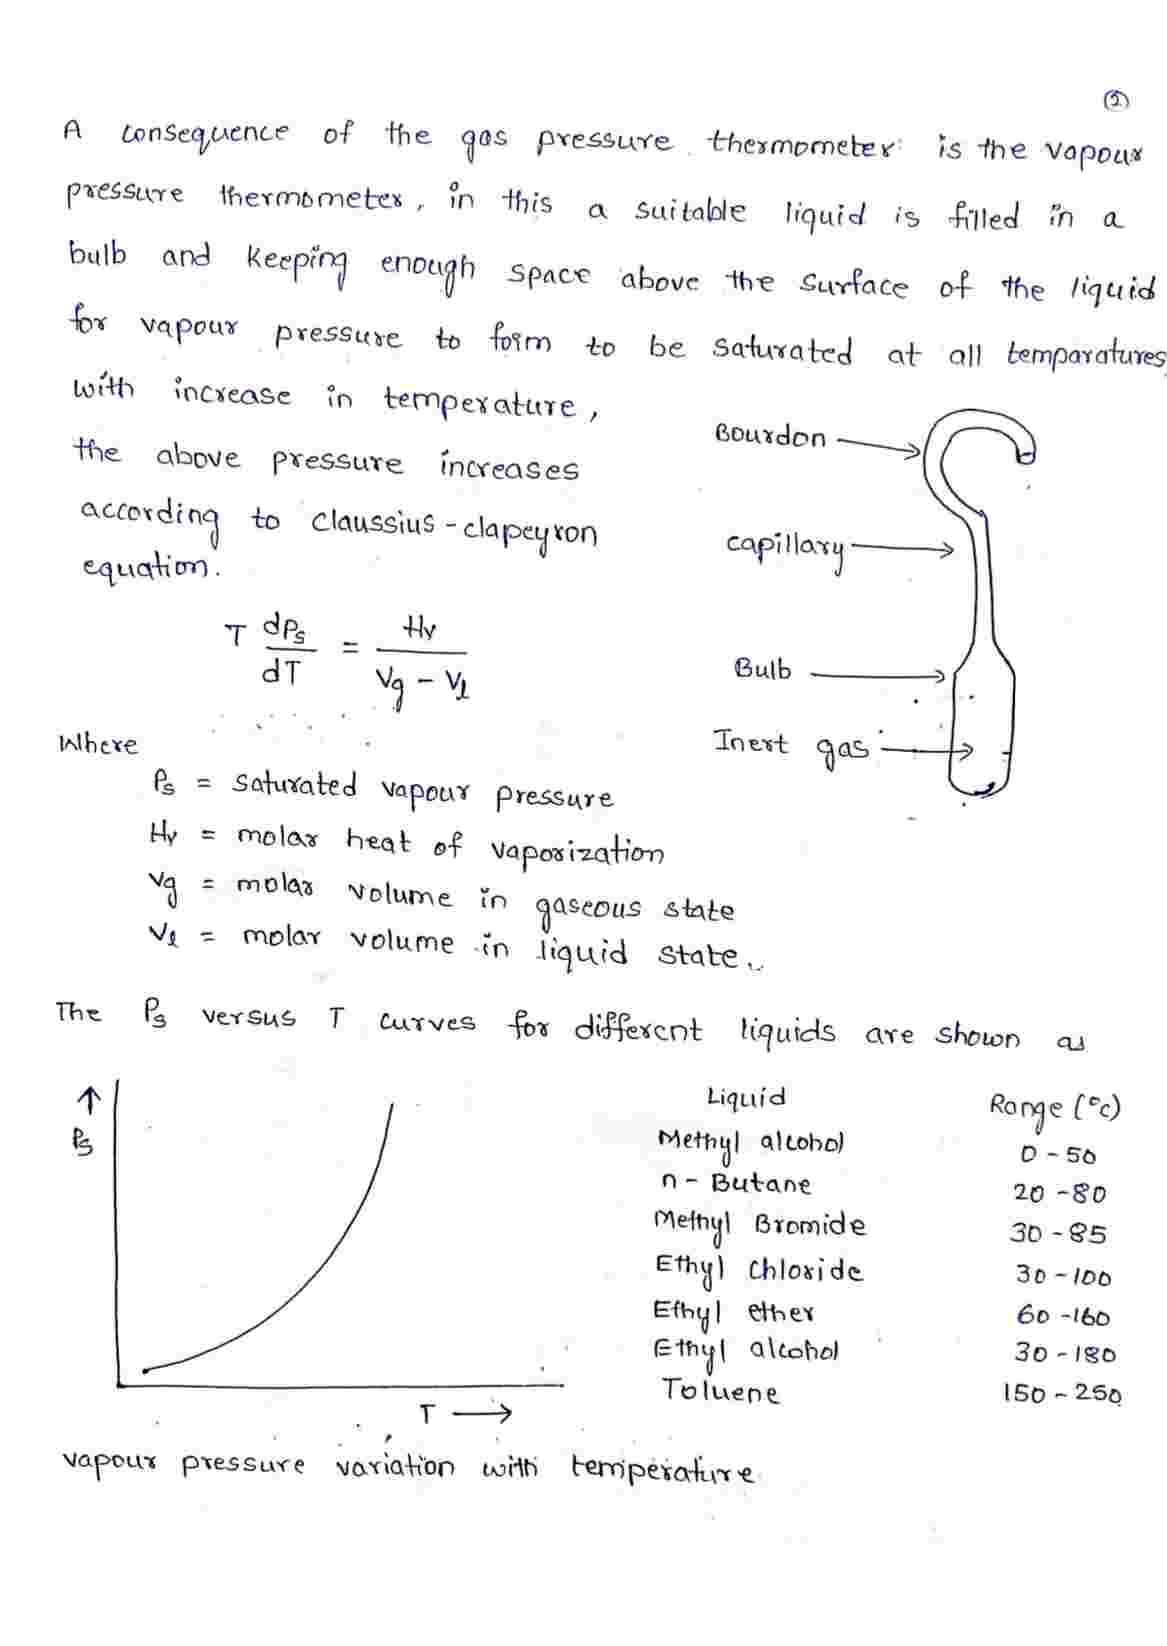 ②
A consequence of the gas pressure thermometer is the vapour
pressure thermometer, in this a suitable liquid is filled in a
bulb and keeping enough space above the surface of the liquid
for vapour pressure to form to be saturated at all temparatures
with increase in temperature,
the above pressure increases
according to claussius-clapeyron
equation.
T dPs/dT = Hv/(Vg - Vl)
Bourdon
capillary
Bulb
Inert gas
Where
Ps = saturated vapour pressure
Hv = molar heat of vaporization
Vg = molar volume in gaseous state
Vl = molar volume in liquid state.
The Ps versus T curves for different liquids are shown as
↑
Ps
T →
Liquid Range (°c)
Methyl alcohol 0 - 50
n - Butane 20 - 80
Methyl Bromide 30 - 85
Ethyl chloride 30 - 100
Ethyl ether 60 - 160
Ethyl alcohol 30 - 180
Toluene 150 - 250
vapour pressure variation with temperature